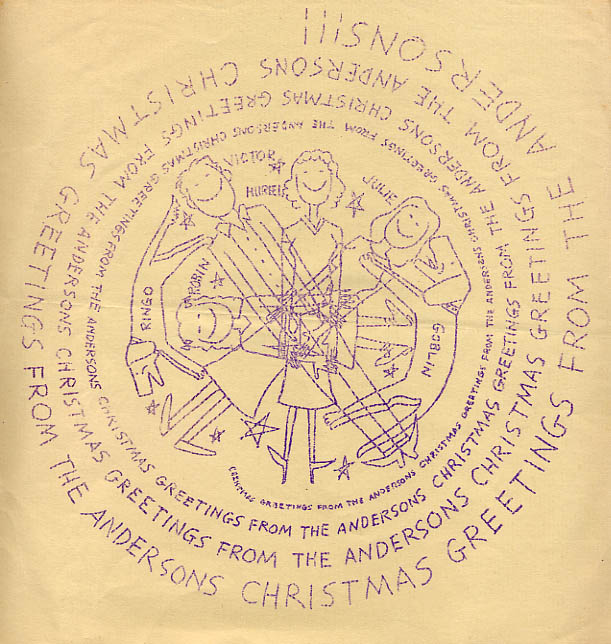 VICTOR
MURIEL
ROBIN
RINGO
GOBLIN
CHRISTMAS GREETINGS FROM THE ANDERSONS CHRISTMAS GREETINGS FROM THE ANDERSONS CHRISTMAS GREETINGS FROM THE ANDERSONS CHRISTMAS GREETINGS FROM THE ANDERSONS CHRISTMAS GREETINGS FROM THE ANDERSONS CHRISTMAS GREETINGS FROM THE ANDERSONS CHRISTMAS GREETINGS FROM THE ANDERSONS CHRISTMAS GREETINGS FROM THE ANDERSONS CHRISTMAS GREETINGS FROM THE ANDERSONS CHRISTMAS GREETINGS FROM THE ANDERSONS CHRISTMAS GREETINGS FROM THE ANDERSONS!!!